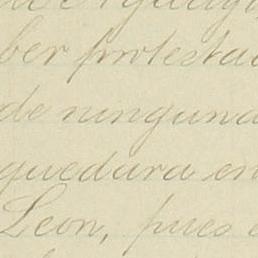 ber protesta
de ninguna
quedara en
Leon, pues